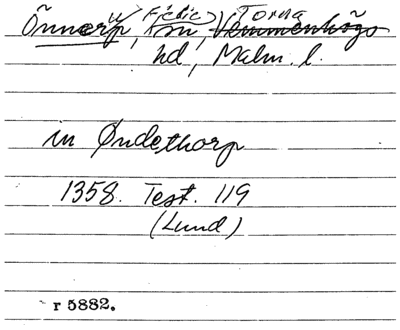 Önnerup, Fjelie sn, Torna
hd, Malm. l.
in Øndethorp
1358. Test. 119
(Lund)
r 5882.